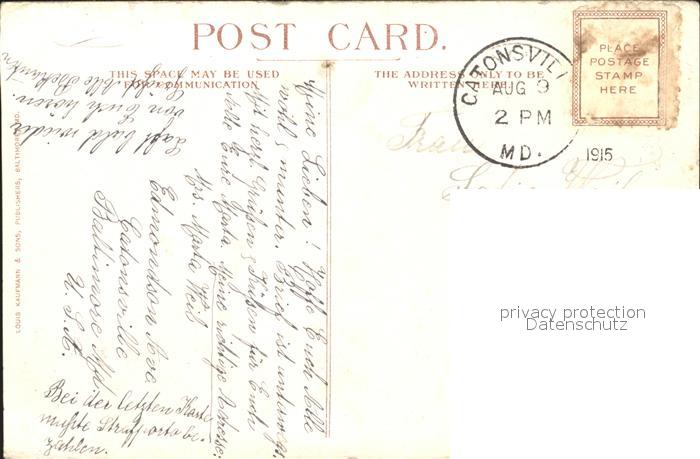 POST CARD.
THIS SPACE MAY BE USED
FOR COMMUNICATION
THE ADDRESS ONLY TO BE
WRITTEN HERE
PLACE
POSTAGE
STAMP
HERE
CATONSVILL
AUG 9
2 PM
MD.
1915
Frau
Meine Lieben! Hoffe Euch Alle
wohl & munter. Brief ist unterwegs.
Herzl Grüßen & Küßen für Euch
Alle Eure Marta. Meine richtige Adresse:
Mrs. Marta Weil
Edmondson Ave
Catonsville
Baltimore Md
U. S. A.
Laßt bald wieder
von Euch hören.
Bei der letzten Karte
mußte Strafporto be-
zahlen.
LOUIS KAUFMANN & SONS, PUBLISHERS, BALTIMORE, MD.
privacy protection
Datenschutz